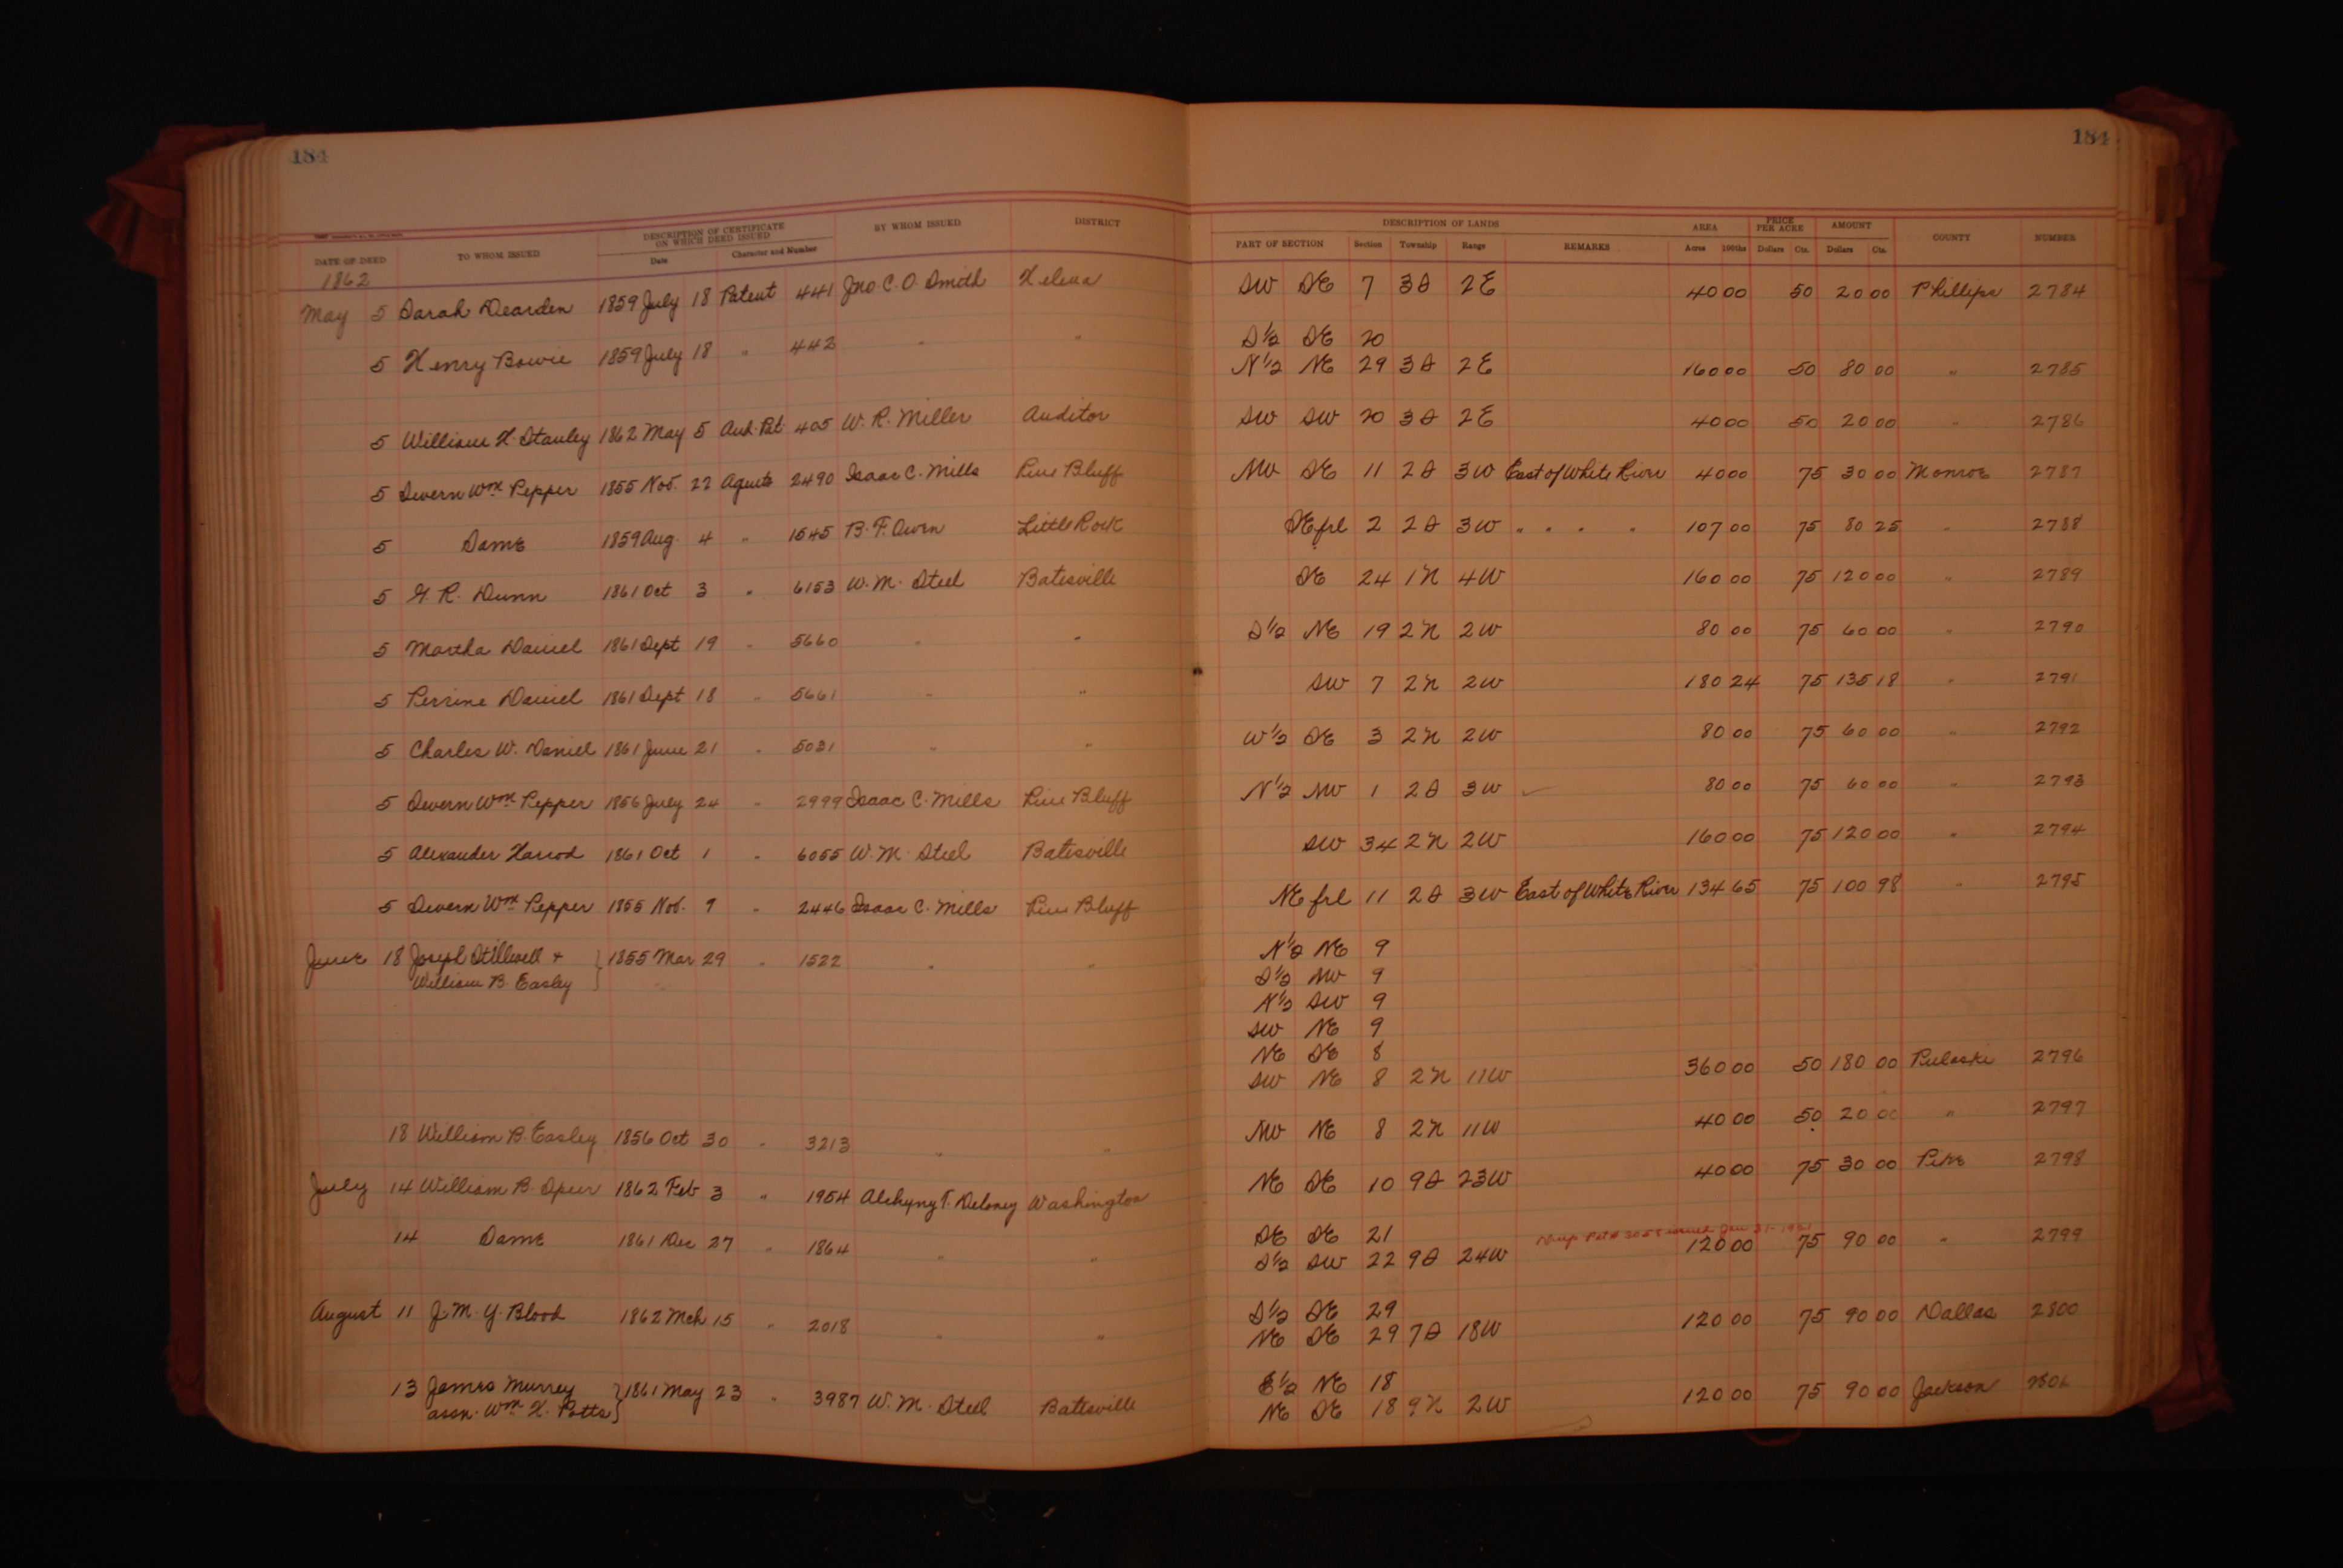 184
184
DATE OF DEED TO WHOM ISSUED DESCRIPTION OF CERTIFICATE ON WHICH DEED ISSUED Date Character and Number BY WHOM ISSUED DISTRICT DESCRIPTION OF LANDS PART OF SECTION Section Township Range REMARKS AREA Acres 100ths PRICE PER ACRE Dollars Cts. AMOUNT Dollars Cts. COUNTY NUMBER
1862
May 5 Sarah Dearden 1859 July 18 Patent 441 Jno. C. O. Smith Helena SW SE 7 3S 2E 40 00 50 20 00 Phillips 2784
S½ SE 20
5 Henry Bowie 1859 July 18 " 442 " " N½ NE 29 3S 2E 160 00 50 80 00 " 2785
5 William H. Stanley 1862 May 5 Aud. Pat. 405 W. R. Miller Auditor SW SW 20 3S 2E 40 00 50 20 00 " 2786
5 Severn Wm Pepper 1855 Nov. 22 Agents 2490 Isaac C. Mills Pine Bluff NW SE 11 2S 3W East of White River 40 00 75 30 00 Monroe 2787
5 Same 1859 Aug. 4 " 1545 B. F. Owen Little Rock SE frl 2 2S 3W " " " " 107 00 75 80 25 " 2788
5 G. R. Dunn 1861 Oct 3 " 6153 W. M. Steel Batesville SE 24 1N 4W 160 00 75 120 00 " 2789
5 Martha Daniel 1861 Sept 19 " 5660 " " S½ NE 19 2N 2W 80 00 75 60 00 " 2790
5 Perrine Daniel 1861 Sept 18 " 5661 " " SW 7 2N 2W 180 24 75 135 18 " 2791
5 Charles W. Daniel 1861 June 21 " 5031 " " W½ SE 3 2N 2W 80 00 75 60 00 " 2792
5 Severn Wm Pepper 1856 July 24 " 2999 Isaac C. Mills Pine Bluff N½ NW 1 2S 3W ✓ 80 00 75 60 00 " 2793
5 Alexander Harrod 1861 Oct 1 " 6055 W. M. Steel Batesville SW 34 2N 2W 160 00 75 120 00 " 2794
5 Severn Wm Pepper 1855 Nov. 9 " 2446 Isaac C. Mills Pine Bluff NE frl 11 2S 3W East of White River 134 65 75 100 98 " 2795
June 18 Joseph Stillwell & 1855 Mar 29 " 1522 " " N½ NE 9
William B. Easley S½ NW 9
N½ SW 9
SW NE 9
NE SE 8
SW NE 8 2N 11W 360 00 50 180 00 Pulaski 2796
18 William B. Easley 1856 Oct 30 " 3213 " " NW NE 8 2N 11W 40 00 50 20 00 " 2797
July 14 William B. Speer 1862 Feb 3 " 1954 T. Deloney Washington NE SE 10 9S 23W 40 00 75 30 00 Pike 2798
SE SE 21 Dup Pat # issued Jan 31-
14 Same 1861 Dec 27 " 1864 " " S½ SW 22 9S 24W 120 00 75 90 00 " 2799
August 11 J. M. Y. Blood 1862 Mch 15 " 2018 " " S½ SE 29
NE SE 29 7S 18W 120 00 75 90 00 Dallas 2800
13 James Murrey 1861 May 23 " 3987 W. M. Steel Batesville E½ NE 18
assn. Wm H. Potts NE SE 18 9N 2W 120 00 75 90 00 Jackson 2801